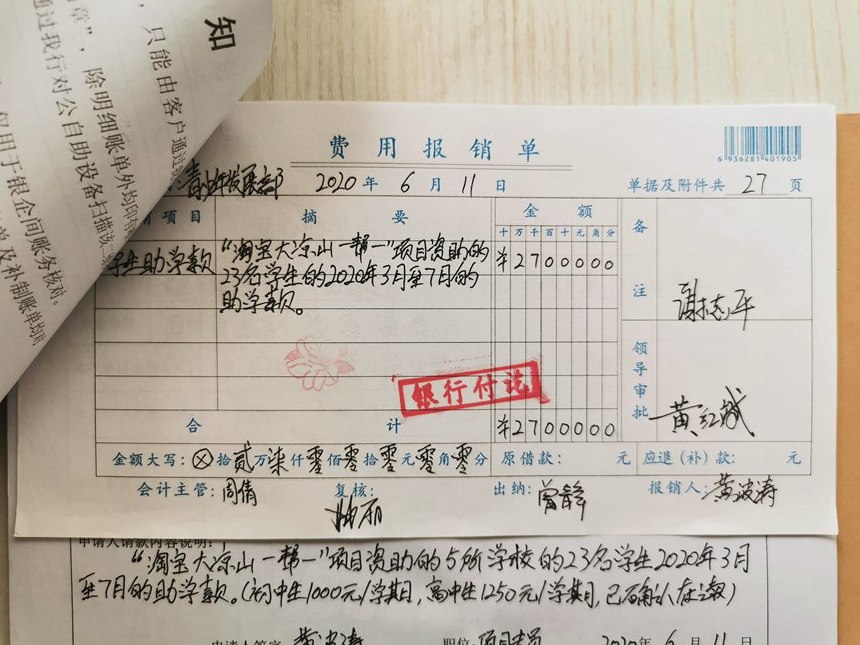 知
只能由客户通过
章”，除明细账单外均
通过我行对公自助设备扫描
用于银企间账务核对。
及补制账单均对
费用报销单
6 936281 401905
青少年发展部 2020 年 6 月 11 日 单据及附件共 27 页
项目 摘要 金额 备注
十万千百十元角分
学生助学款 “淘宝大凉山一帮一”项目资助的 ¥2700000
23名学生的2020年3月至7月的
助学款。
谢志平
领导审批
黄红斌
银行付讫
合计 ¥2700000
金额大写：⊗拾贰万柒仟零佰零拾零元零角零分 原借款： 元 应退（补）款： 元
会计主管：周倩 复核： 出纳：曾静 报销人：黄波涛
申请人请款内容说明：
“淘宝大凉山一帮一”项目资助的5所学校的23名学生2020年3月
至7月的助学款。（初中生1000元/学期，高中生1250元/学期，已确认在读）
申请人签字 黄波涛 职位：项目专员 2020年 6 月 11 日